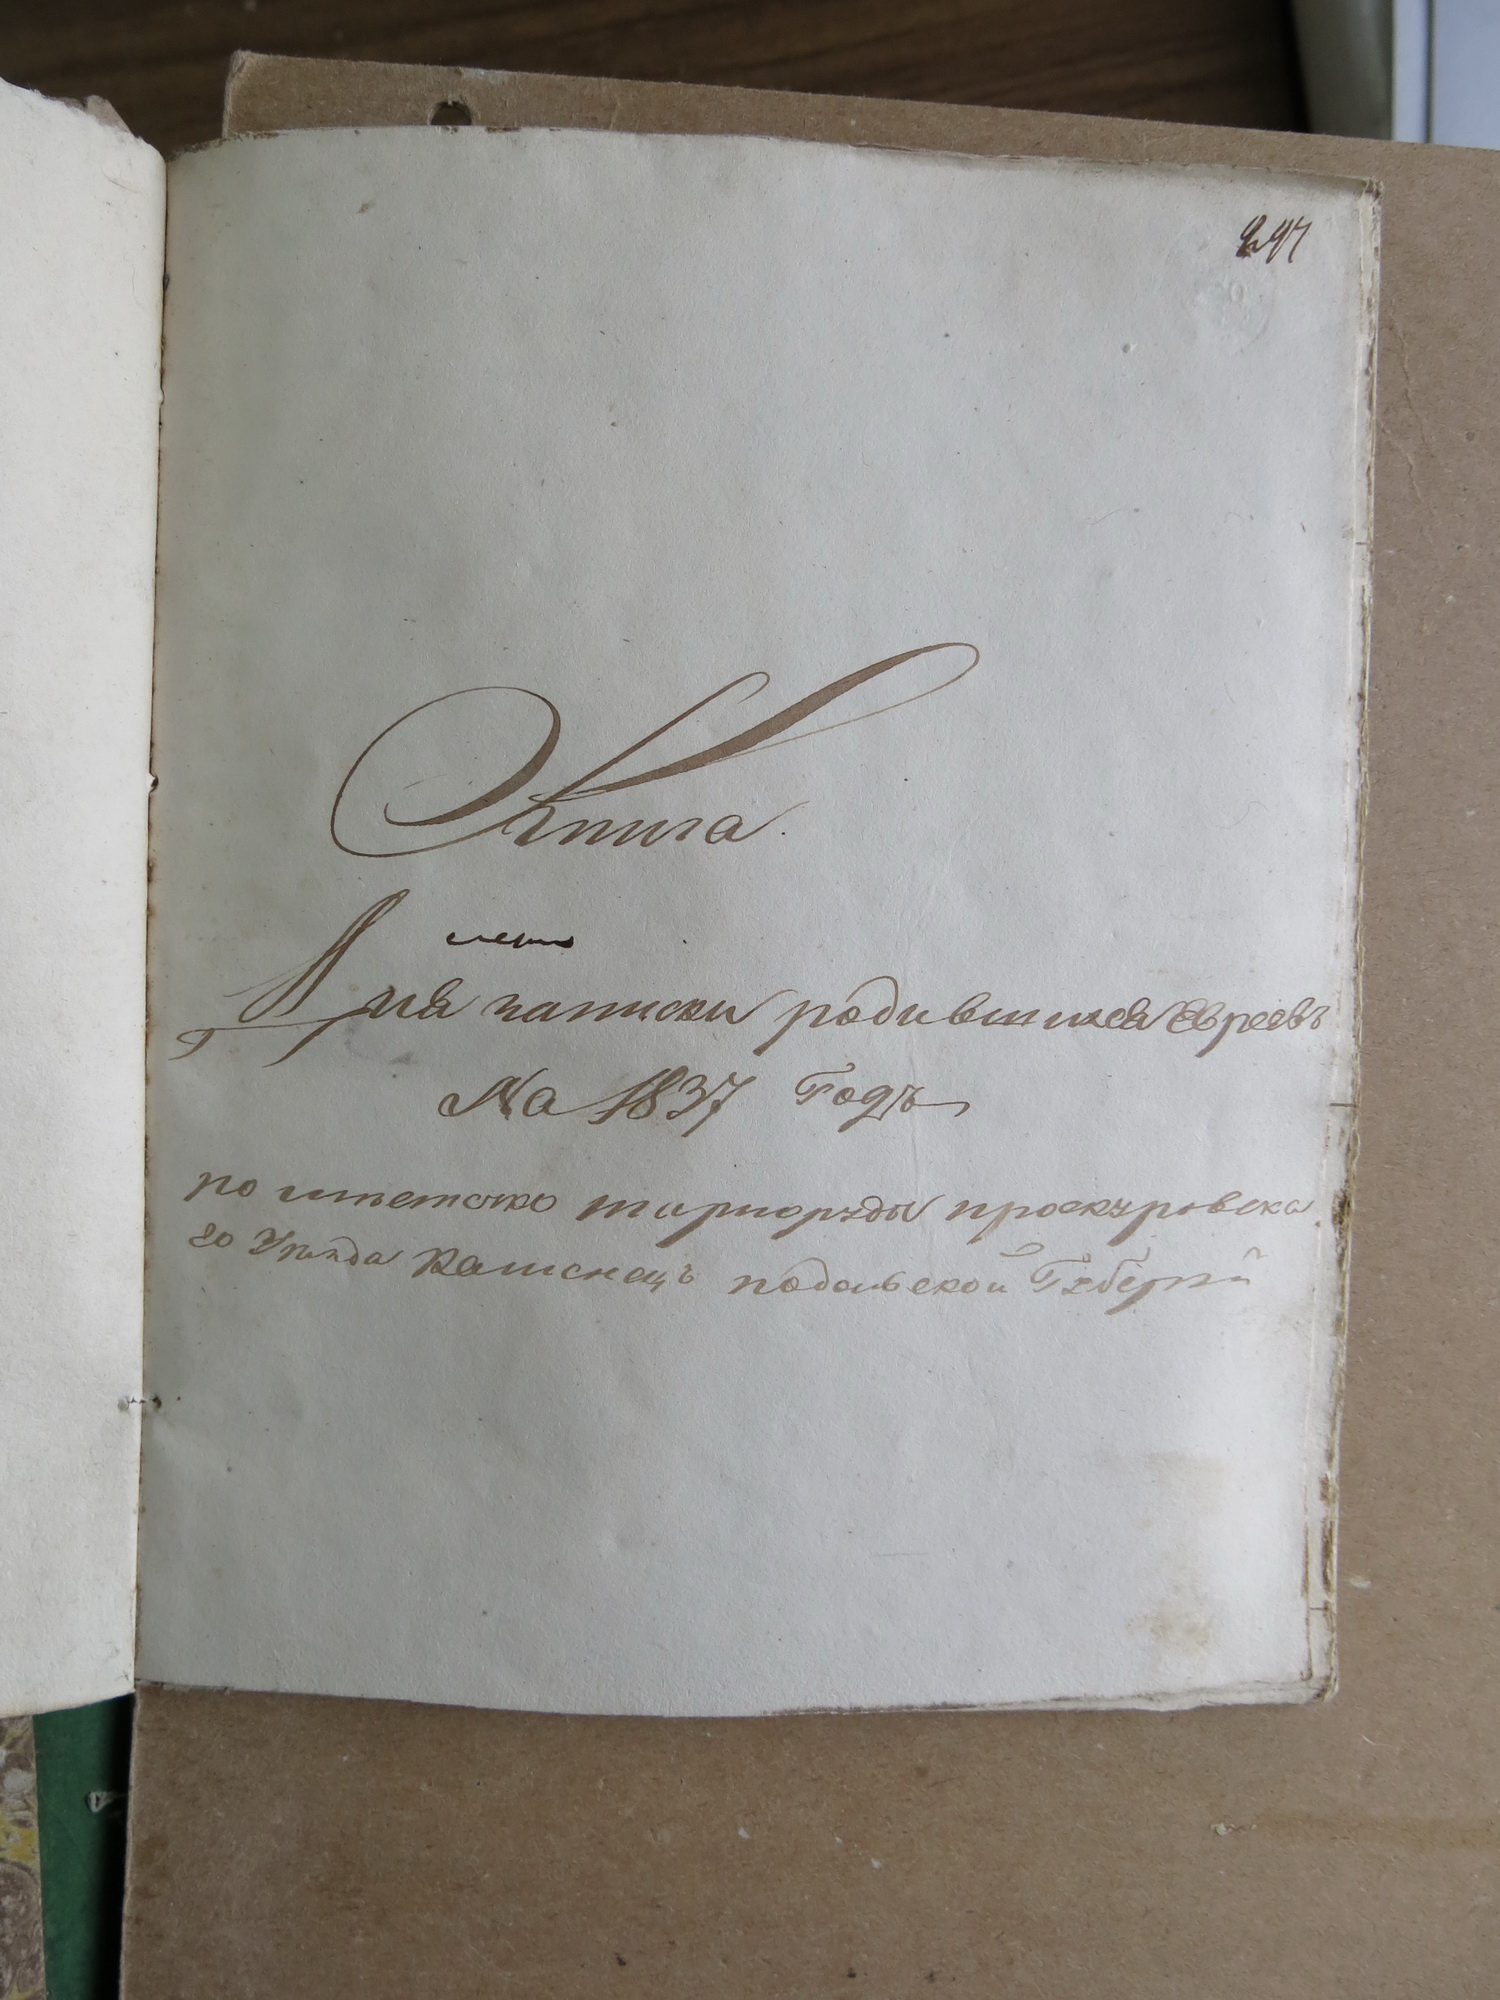 297
Книга
Для записки родившихся Евреевъ
На 1837 Годъ
по мѣстечко тарноруды проскуровска
го Уѣзда Каменецъ подольской Губерніи